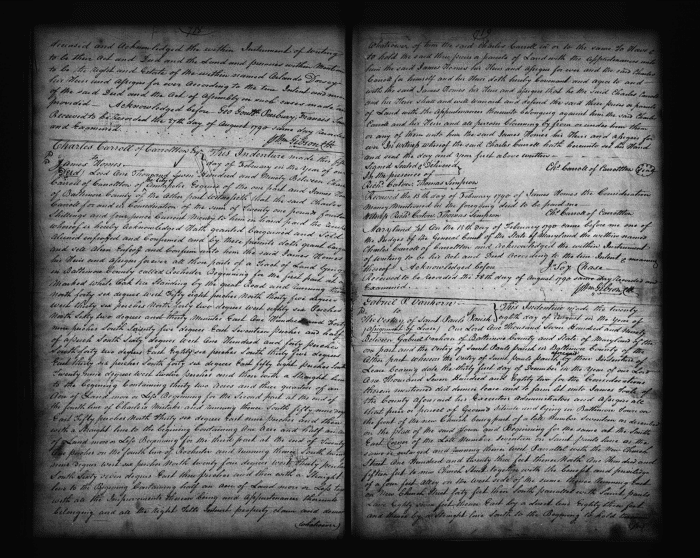 deceased and Acknowledged the within Instrument of Writing
to be their Act and Deed and the Land and premises within Mentioned
to be the Right and Estate of the within named
his Heirs and Assigns for ever According to the true Intent and
of the said Deed and the Act of Assembly in such cases made
provided Acknowledged before Geo Gouldr Presbury Francis
Received to be recorded the 27th day of August 1790 same day
and Examined Wm Gibson Clk
Charles Carroll of Carrollton Esqr This Indenture made this
to
James Homes day of February in the Year of our
Deed Lord One Thousand Seven Hundred and Ninety Between Charles
Carroll of Carrollton of of the one part and James
of Baltimore County of the other part Witnesseth that the said Charles
Carroll for and in Consideration of the sum of pounds
Shillings and four pence Current Money to him in hand paid the
whereof is hereby Acknowledged Hath granted bargained and Sold
aliened enfeoffed and confirmed and by these presents doth grant bargain
and sell Alien Enfeoff and Confirm unto the said James Homes
his Heirs and Assigns forever all those parts of a Tract of Land lying
in Baltimore County called Beginning for the first part at a
Marked White Oak Tree Standing by the great Road and running
North forty six degrees West Fifty eight perches North thirty five degrees
West thirty six perches North degrees West sixty six perches
North Sixty two degrees and thirty Minutes East One Hundred and
nine perches South Seventy five degrees East Seventeen perches and half
of a perch South Sixty degrees West One Hundred and forty perches
South forty one degrees East Eighty one perches South thirty five degrees
East thirty six perches South forty six degrees East fifty eight perches
Twenty nine degrees West perches and then with a Straight line
to the beginning Containing thirty two Acres and three quarters of an
Acre of Land more or Less Beginning for the Second part at the end of
the fourth line of Charles Mistake and running thence South fifty
East Fifty perches North thirty one degrees East nine perches and then
with a Straight line to the beginning Containing One Acre and
of Land more or Less Beginning for the third part at the end of
One perches on the fourth line of and running thence South
nine degrees West six perches North Seventy four degrees West
South Sixty seven degrees East three perches and then with a Straight
line to the Beginning Containing half an Acre of Land more or Less
with all the Improvements thereon being and Appurtenances thereunto
belonging and all the right Title Interest property claim and demand
Whatsoever
Whatsoever of him the said Charles Carroll in or to the same To Have &
to hold the said three parts or parcels of Land with the Appurtenances unto
him the said James Homes his Heirs and Assigns for ever and the said Charles
Carroll for himself and his Heirs doth hereby Covenant and agree to and
with the said James Homes his Heirs and Assigns that he the said Charles Carroll
and his Heirs shall and will warrant and defend the said three parts or parcels
of Land with the Appurtenances thereunto belonging against him the said Charles
Carroll and his Heirs and all persons Claiming by from or under them
or any of them unto him the said James Homes his Heirs and Assigns for
ever In Witness whereof the said Charles Carroll hath hereunto set his Hand
and Seal the day and Year first above written
Signed Sealed & Delivered Chs Carroll of Carrollton Seal
In the presence of
Richd Caton Thomas Simpson
Received the 15 day of February 1790 of James Homes the Consideration
Money Mentioned in the foregoing deed to be paid me
Witness Richd Caton Thomas Simpson Chs Carroll of Carrollton
Maryland St On the 15th day of February 1790 came before me one of
the Judges of the General Court of the State of Maryland the within named
Charles Carroll of Carrollton and Acknowledged the within Instrument
of Writing to be his Act and Deed According to the true Intent & meaning
thereof Acknowledged before Jery Chase
Received to be recorded the 28th day of August 1790 same day Recorded and
Examined Wm Gibson Clk
Gabriel P Vanhorn This Indenture made the twenty
to
The Vestry of Saint Pauls Parish eighth day of February in the Year of
Assignment of Lease Our Lord One Thousand Seven Hundred and Ninety
Between Gabriel Vanhorn of Baltimore County and State of Maryland of the
one part and the Vestry of Saint Pauls parish in Baltimore County of
the other part Whereas the Vestry of Saint Pauls parish by their Indenture of
Lease bearing date the thirty first day of December in the Year of our Lord
One Thousand Seven Hundred and Eighty two for the Considerations
therein mentioned did demise Lease and to farm let unto James
of the County Aforesaid his Executors Administrators and Assigns all
that part or parcel of Ground Situate and lying in Baltimore Town on
the front of the new Church being part of Lot Number Seventeen as described
on the Plat of the said Town and Beginning for the same at the South
East Corner of the Lott Number Seventeen in Saint Pauls Lane as the
same is enlarged and running thence West Parallel with the New Church
Street One Hundred and twenty five feet thence North One Hundred and
fifteen feet to New Church Street together with the benefit and privilege
of a four feet Alley on the West side of the same thence running East
on New Church Street forty feet then South parallel with Saint Pauls
Lane Eighty Seven feet thence East by a direct line Eighty Seven feet
and thence by a straight line South to the Beginning to hold